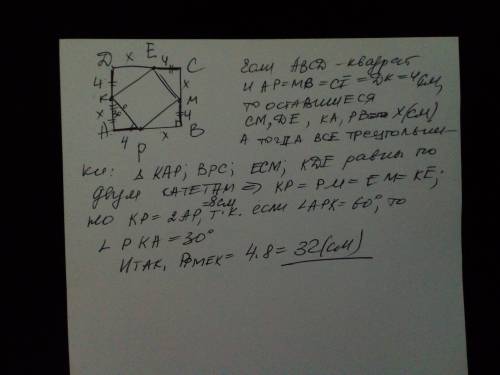 D x E 4 C
4 x
K M
x 30° 4
A 4 P x B
Если ABCD - квадрат
и AP=MB=CE=DK=4см,
то оставшиеся
CM, DE, KA, PB = x(см)
А тогда все треугольни-
ки: Δ KAP; BPC; ECM; KDE равны по
двум катетам ⇒ KP=PM=EM=KE;
но KP=2AP=8см, т.к. если ∠APK=60°, то
∠PKA=30°
Итак, PPMEK = 4.8= 32(см)